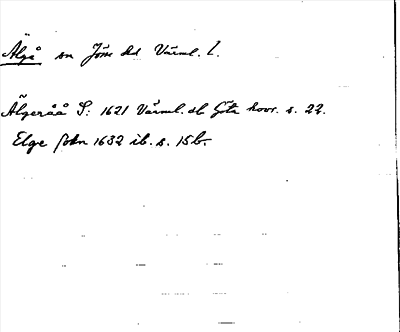 Älgå sn Jösse hd Värml. l.
Älgeråå S: 1621 Värml. db Göta hovr. s. 22.
Elge sokn 1632 ib. s. 15b.